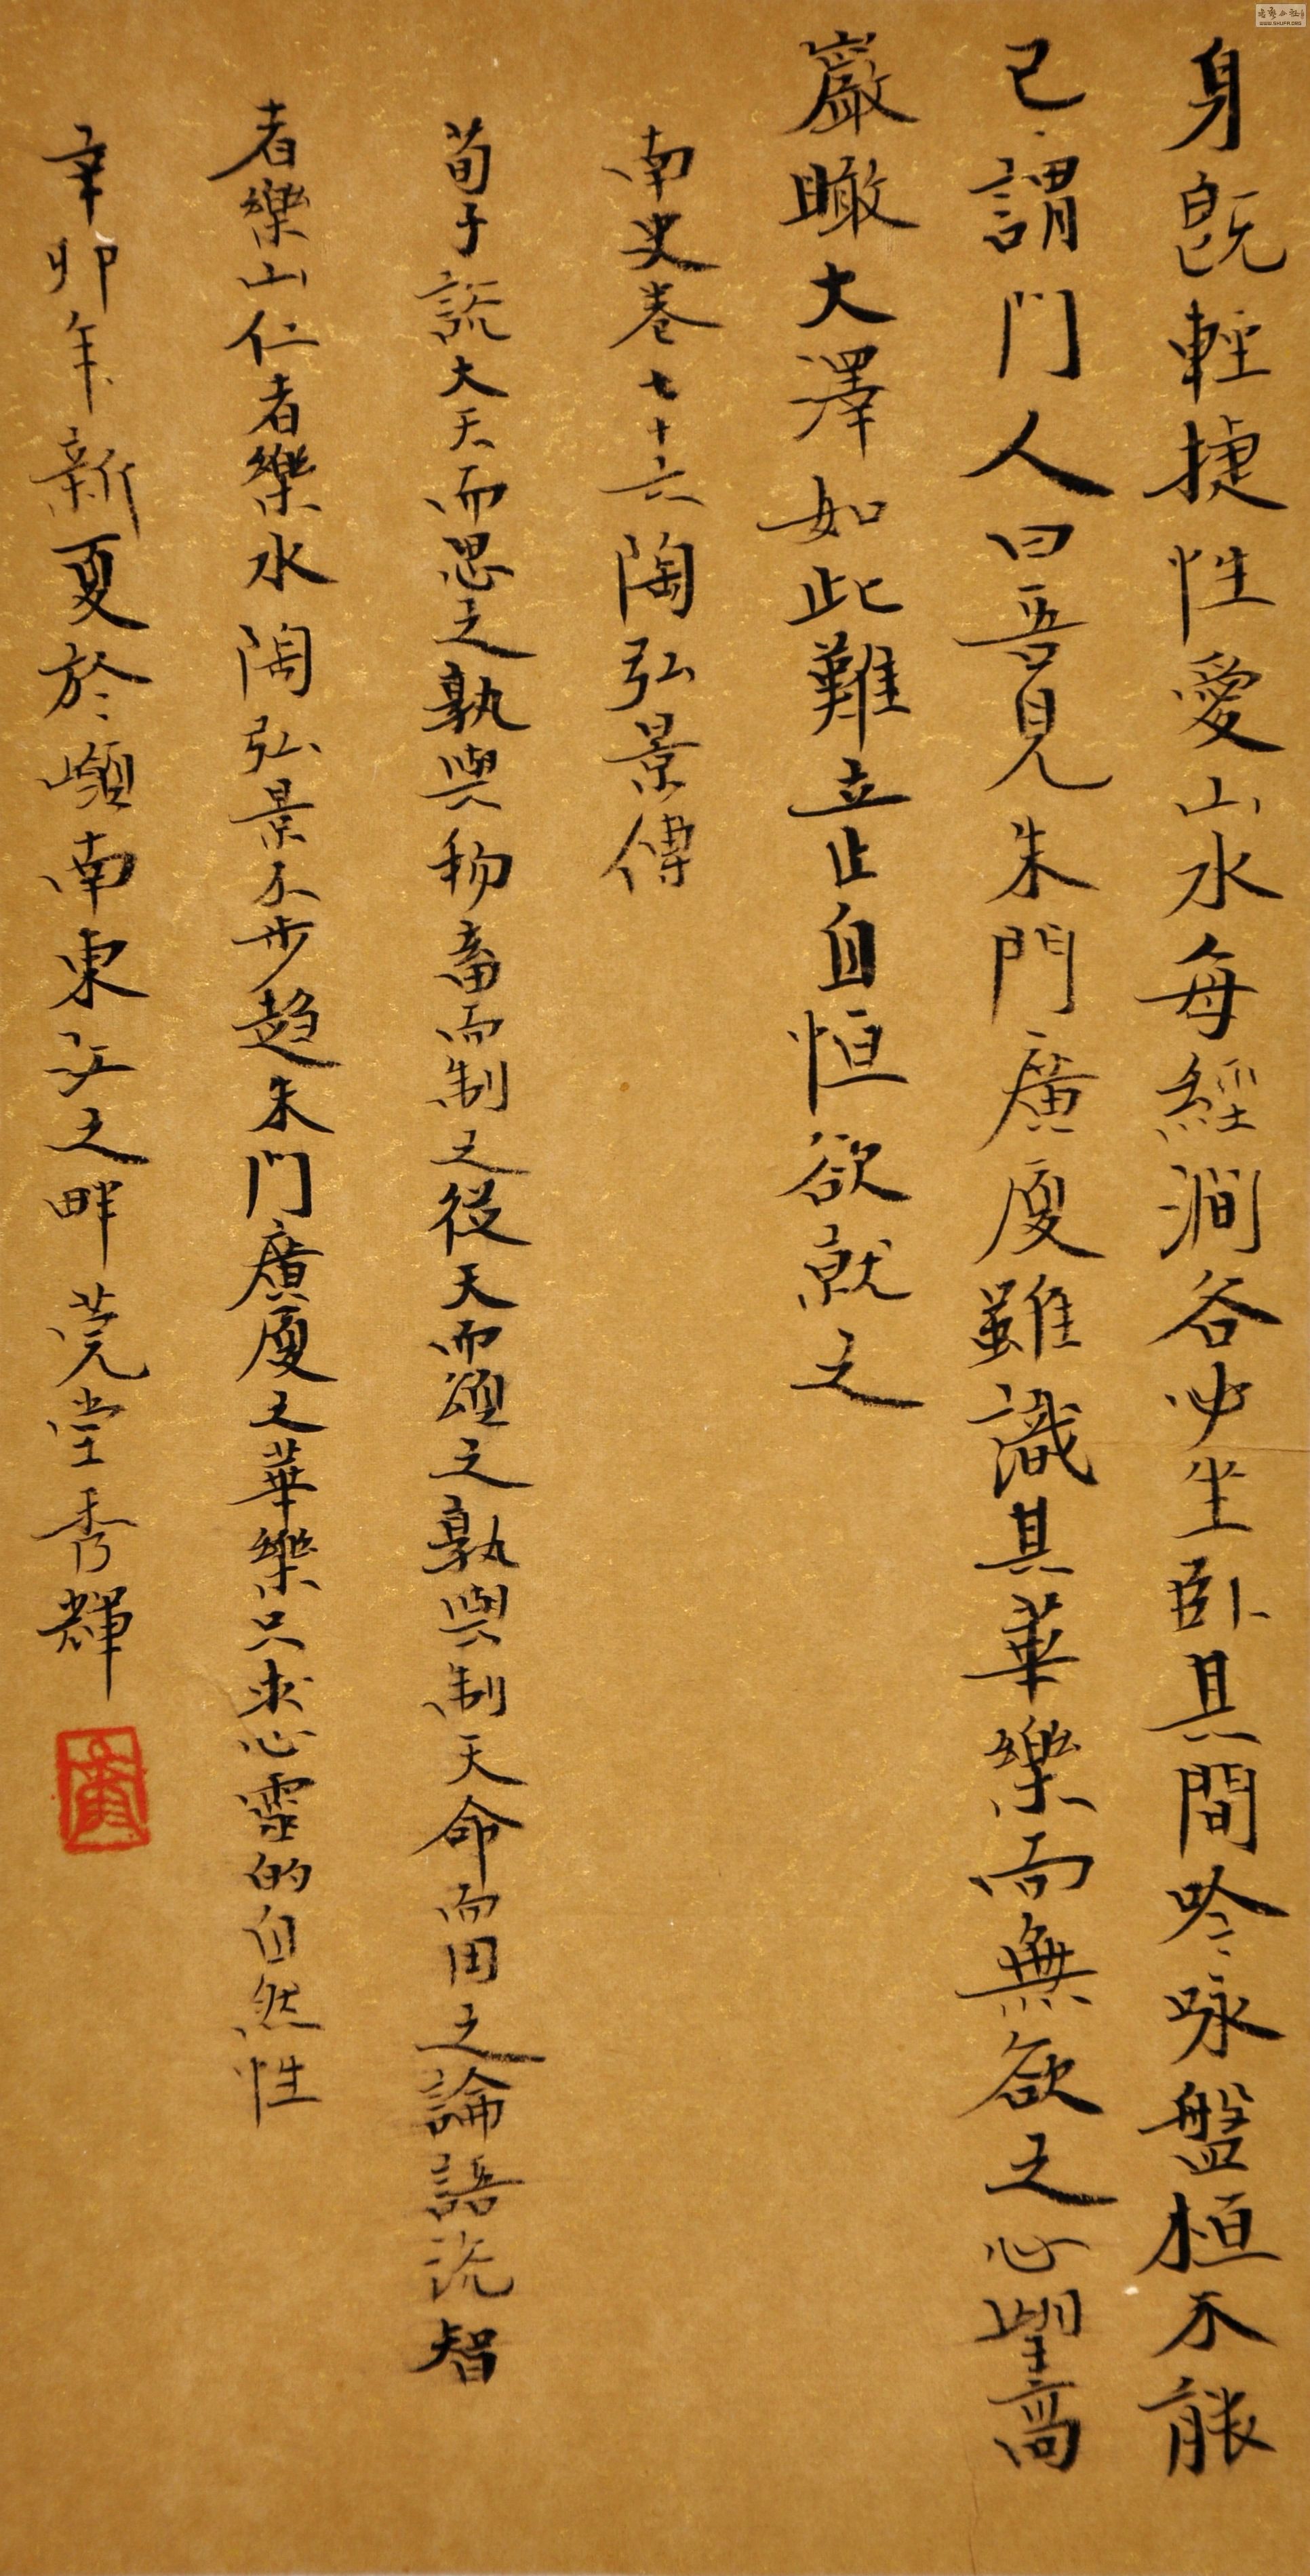 身既輕捷性愛山水每經澗谷必坐臥其間吟咏盤桓不能
已謂門人曰吾見朱門廣廈雖識其華樂而無欲之心望高
巖瞰大澤如此難立止自恒欲就之
南史卷七十六陶弘景傳
荀子説大天而思之孰與物畜而制之從天而頌之孰與制天命而用之論語説智
者樂山仁者樂水陶弘景不步趋朱門廣廈之華樂只求心靈的自然性
辛卯年新夏於嶺南東江之畔莞堂秀輝
WWW.SHUFA.ORG